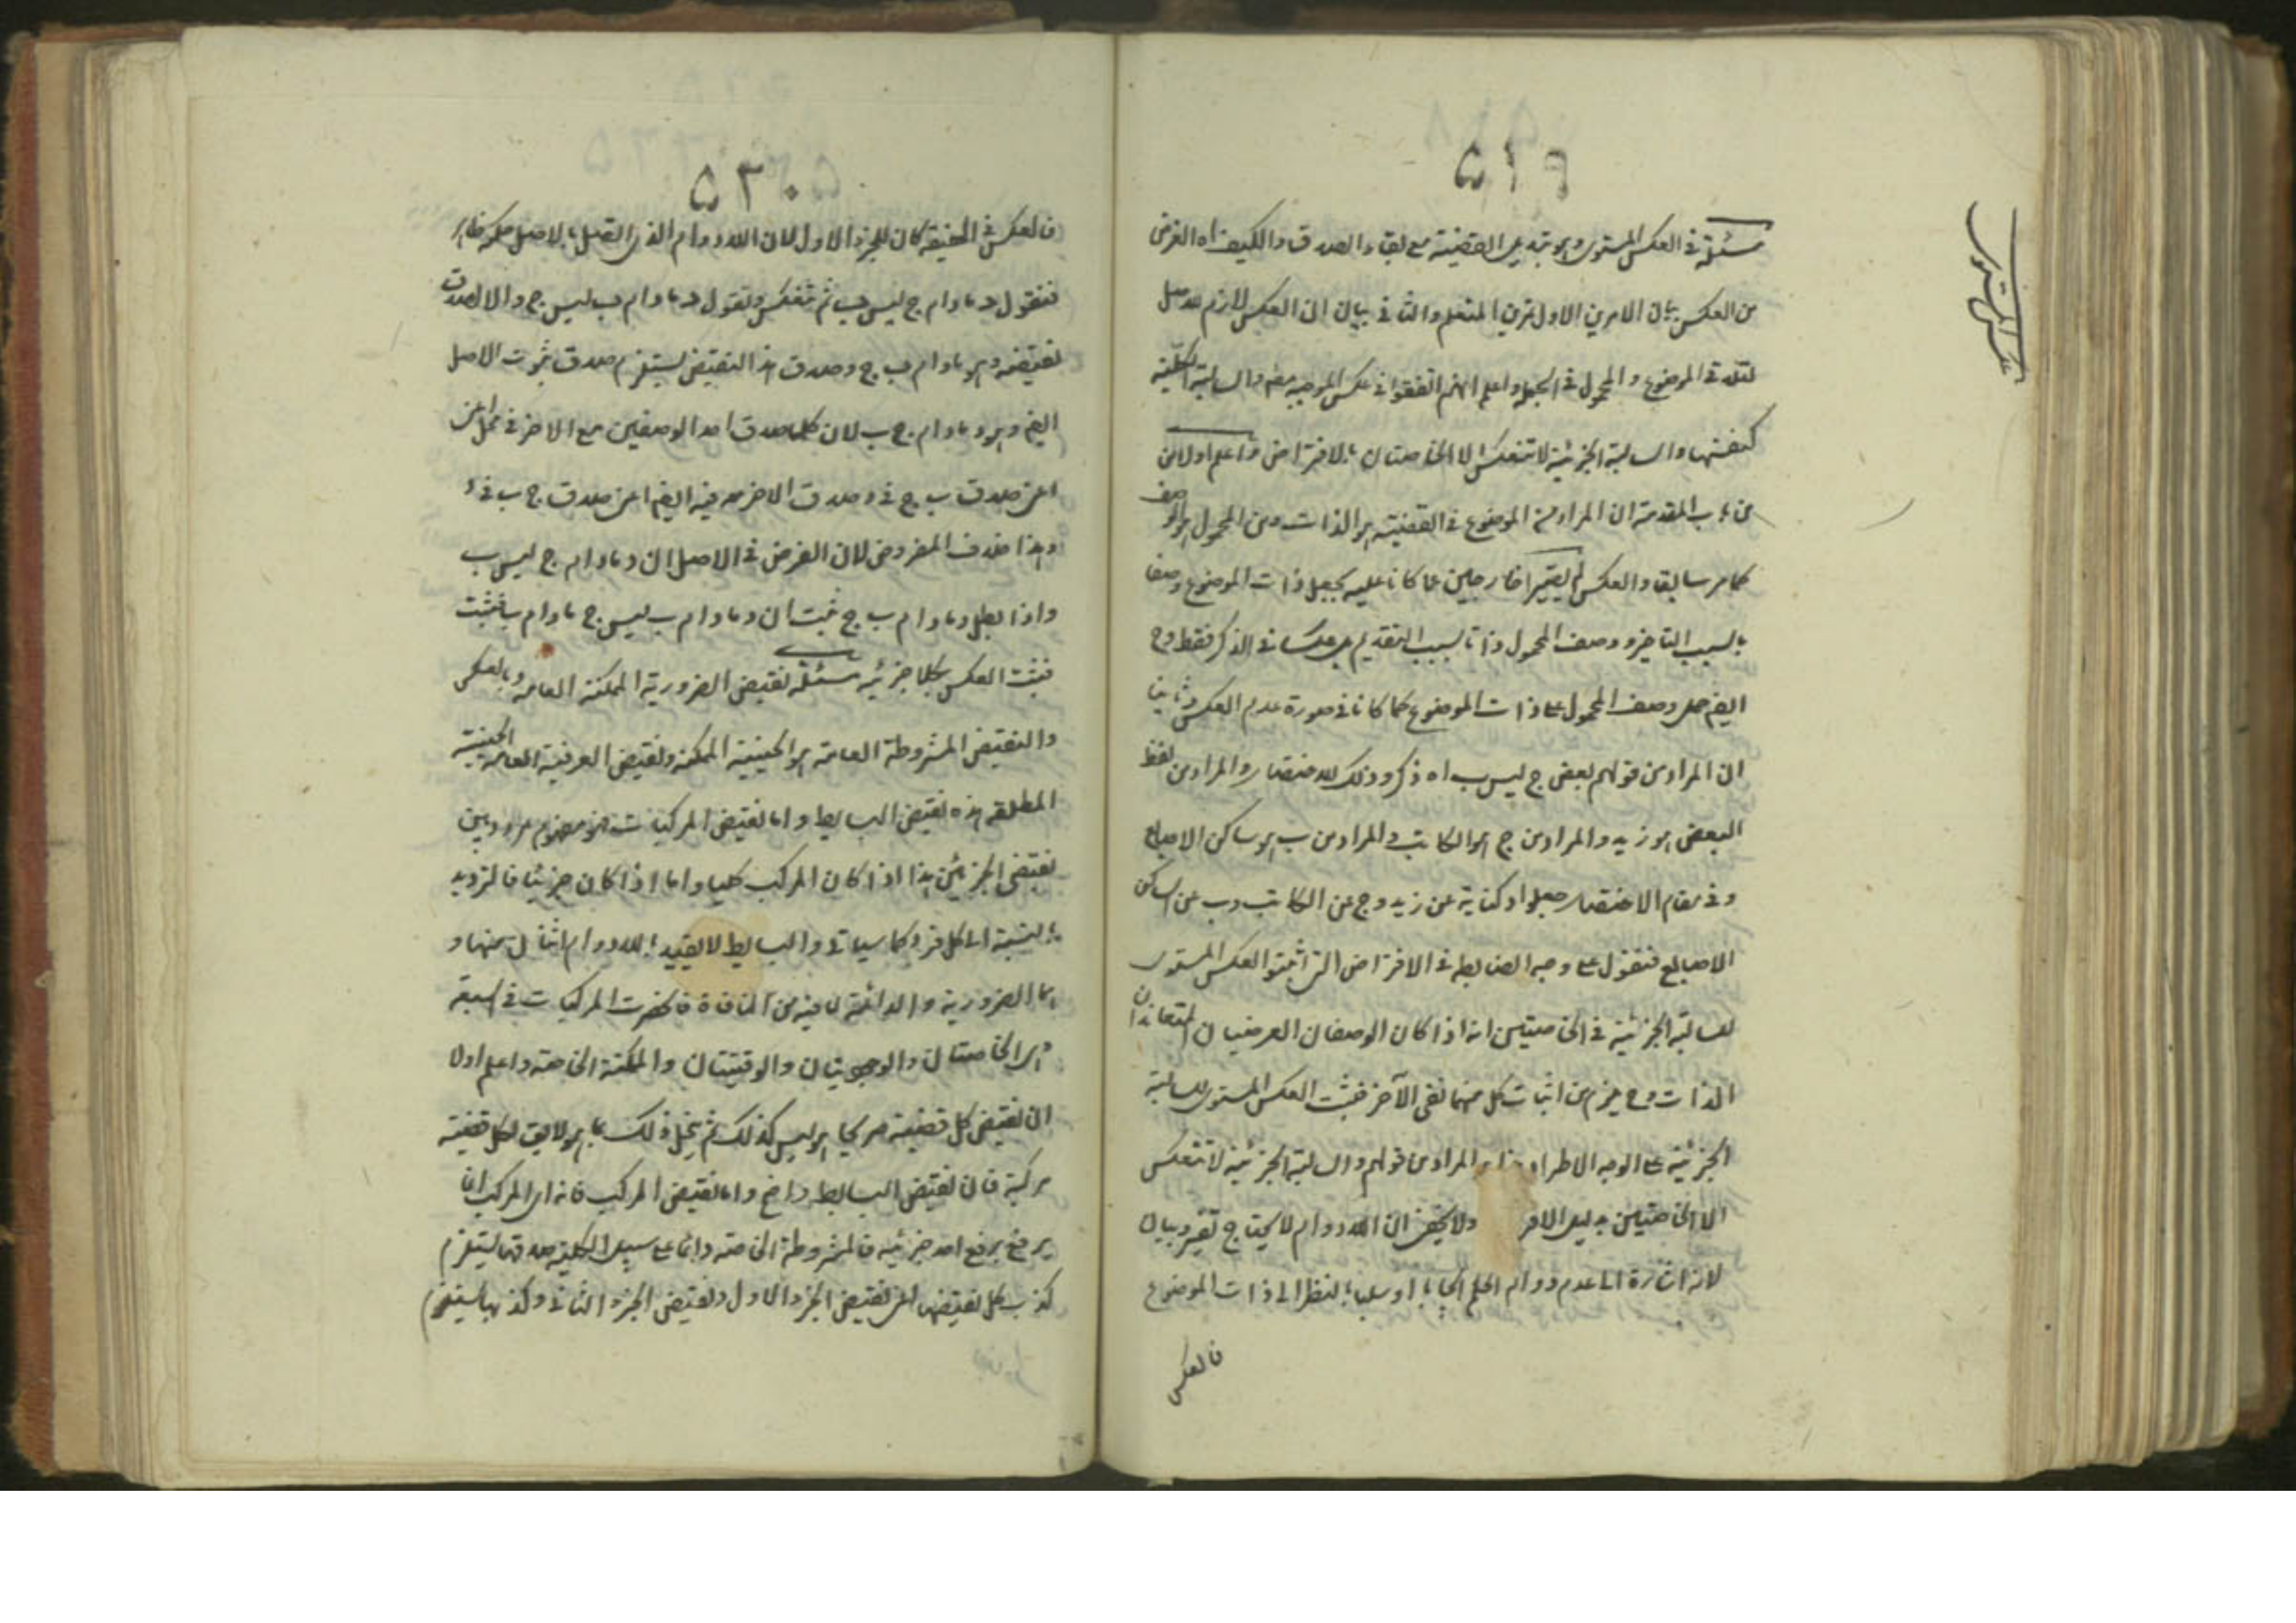 ٥١٩
مسئلة في العكس المستوي وهو تبديل القضية مع بقاء الصدق والكيف اه الغرض
من العكس بيان الامرين الاول تمرين المتعلم والثاني بيان ان العكس لازم للاصل
الموضوع والمحمول في الجملة واعلم انهم اتفقوا في عكس الموجبة والسالبة الكلية
كنفسها والسالبة الجزئية لا تنعكس الا الخاصتان بالافتراض واعلم اولا ان
من باب المقدمة ان المراد من الموضوع في القضية هو الذات ومن المحمول هو الوصف
كما مر سابقا والعكس لم يصيرا خارجين عما كانا عليه بجعل ذات الموضوع وصفا
بالسبب التاخير ووصف المحمول ذاتا بسبب التقديم بل عكسنا في الذكر فقط وح
ايضا حمل وصف المحمول على ذات الموضوع كما كانا في صورة عدم العكس وثانيا
ان المراد من قولهم بعض ج ليس ب اه ذكر وذلك للاختصار والمراد من لفظ
البعض هو زيد والمراد من ج هو الكاتب والمراد من ب هو ساكن الاصابع
وفي مقام الاختصار جعلوا د كناية عن زيد وج عن الكاتب وب عن الساكن
الاصابع فنقول على وجه الضابطة في الافتراض التي اثبتوا العكس المستوي
لسالبة الجزئية في الخاصيتين انه اذا كان الوصفان العرضيان المتعاندان
الذات وح يلزم من اثبات كل منهما نفي الآخر فثبت العكس المستوي للسالبة
الجزئية على الوجه الاطراد هذا هو المراد من قولهم والسالبة الجزئية لا تنعكس
الا الخاصتين بدليل الافتر ولا يخفى ان اللادوام لا يحتاج تغيير وبيان
لانه اشارة الى عدم دوام الحكم ايجابا او سلبا بالنظر الى ذات الموضوع
فالعكس
العكس المستوي
٥٢٠
فالعكس في الحقيقة كان للجزء الاول لان اللادوام الذي اتصل بالاصل حكمه ظاهر
فنقول د مادام ج ليس ب ثم تنعكس وتقول د مادام ب ليس ج والا لصدق
نقيضه وهو مادام ب ج وصدق هذا النقيض يستلزم صدق ثبوت الاصل
ايضا وهو د مادام ج ب لان كلما صدق احد الوصفين مع الاخر في محل اعني
اعني صدق ب ج في د صدق الاخر معه فيه ايضا اعني صدق ج ب في د
وهذا خلاف المفروض لان الفرض في الاصل ان د مادام ج ليس ب
واذا بطل د مادام ب ج ثبت ان د مادام ب ليس ج مادام ب فثبت
فثبت العكس بكلا جزئيه مسئلة نقيض الضرورية الممكنة العامة وبالعكس
والنقيض المشروطة العامة هو الحينية الممكنة ونقيض العرفية العامة الحينية
المطلقة هذه نقيض البسايط واما نقيض المركبات فهو مفهوم مردد بين
نقيضي الجزئين هذا اذا كان المركب كليا واما اذا كان جزئيا فالترديد
بالنسبة الى كل فرد كما سياتي والبسايط لا يقيد باللادوام اثنان منها و
هما الضرورية والدائمة لما فيه من المنافاة فانحصرت المركبات في السبعة
وهي الخاصتان والوجوديتان والوقتيتان والممكنة الخاصة واعلم اولا
ان نقيض كل قضية صريحا هو ليس كذلك ثم ينحل ذلك بما هو لايق لكل قضية
مركبة فان نقيض البسايط واضح واما نقيض المركب فانه اي المركب انما
يرفع برفع احد جزئيه فالمشروطة الخاصة دائما على سبيل الكلية صدقها يستلزم
كذب كل نقيضها اعني نقيض الجزء الاول ونقيض الجزء الثاني وكذبها يستلزم